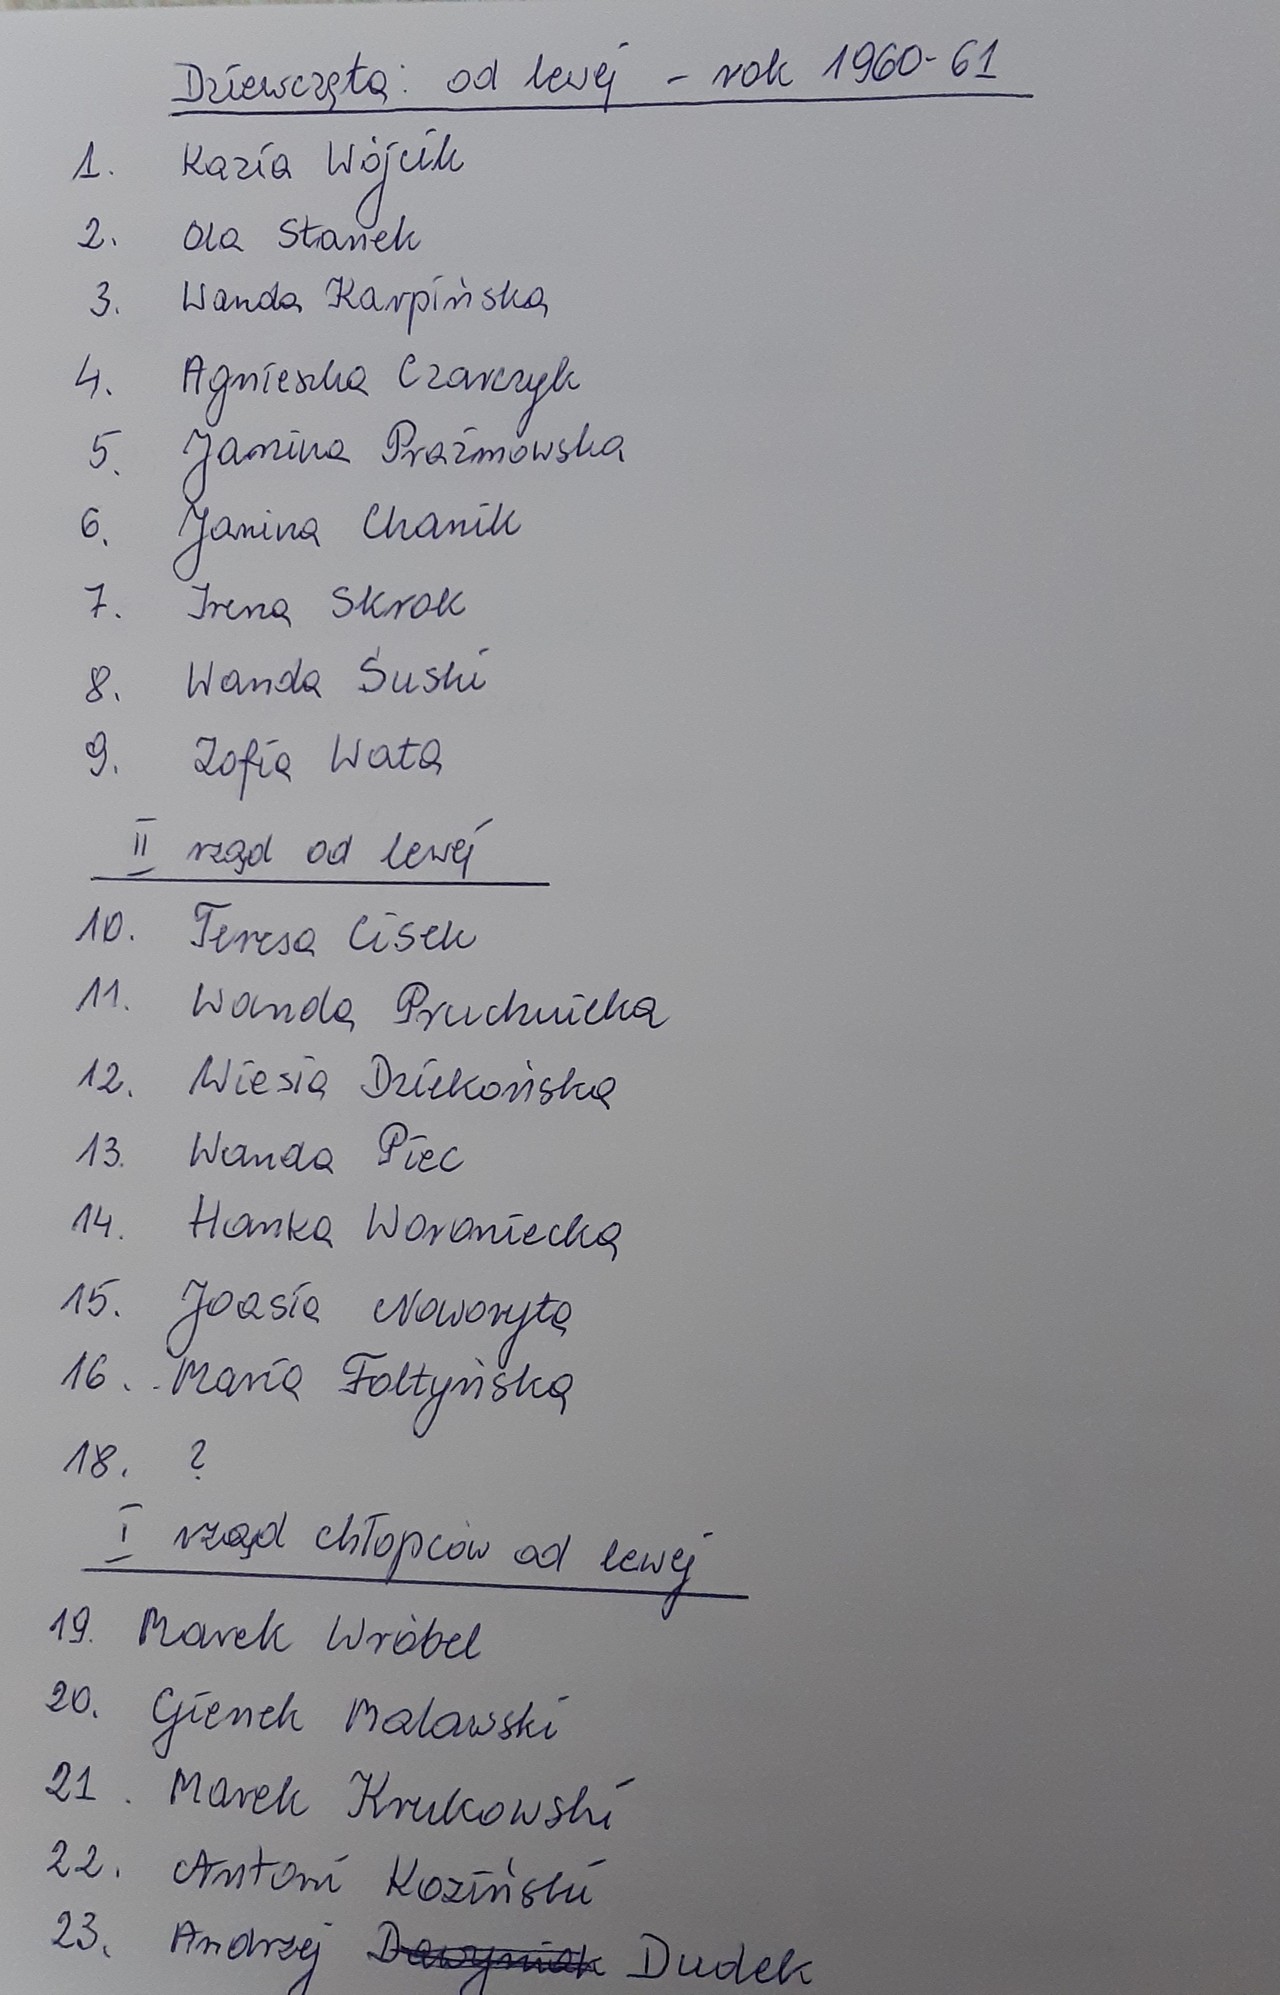 Dziewczęta: od lewej - rok 1960-61
1. Kazia Wójcik
2. Ola Stanek
3. Wanda Karpińska
4. Agnieszka Czarczyk
5. Janina Prażmowska
6. Janina Chanik
7. Irena Skrok
8. Wanda Suski
9. Zofia Wata
II rząd od lewej
10. Teresa Cisek
11. Wanda Pruchnicka
12. Wiesia Dziekońska
13. Wanda Piec
14. Hanka Woroniecka
15. Joasia Naworyta
16. Maria Fołtyńska
18. ?
I rząd chłopców od lewej
19. Marek Wróbel
20. Gienek Malawski
21. Marek Krukowski
22. Antoni Koziński
23. Andrzej Dudek